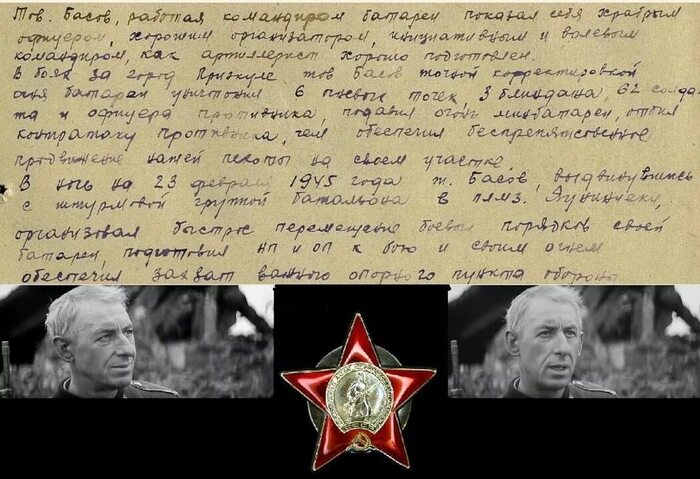 Тов. Басов, работая командиром батареи показал себя храбрым
офицером, хорошим организатором, инициативным и волевым
командиром, как артиллерист хорошо подготовлен.
В боях за город Приэкуле тов Басов точной корректировкой
огня батареи уничтожил 6 огневых точек, 3 блиндажа, 62 солда-
та и офицера противника, подавил огонь минбатареи, отбил
контратаку противника, чем обеспечил беспрепятственное
продвижение нашей пехоты на своем участке
В ночь на 23 февраля 1945 года т. Басов, выдвинувшись
с штурмовой группой батальона в
организовал быстрое перемещение боевых порядков своей
батареи, подготовил НП и ОП к бою и своим огнем
обеспечил захват важного опорного пункта обороны